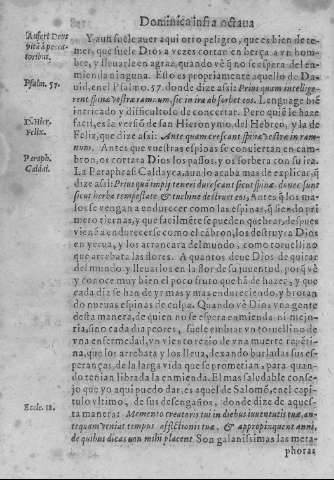 Dominica infra octaua
Aufert Deus
vitã à peccatoribus.
Y aun suele auer aqui otro peligro, que es bien de temer,
que suele Dios a vezes cortar en berça a vn hombre,
y lleuarle en agraz, quando vè q̃ no se espera del enmienda
ninguna. Esto es propriamente aquello de Dauid,
Psalm. 57.
en el Psalmo. 57. donde dize assi: Prius quam intelligerent
spinæ vestræ ramnum, sic in ira absorbet eos. Lenguage bien
intricado y dificultoso de concertar. Pero quiẽ le haze
D. Hier.
facil, es la versiõ de san Hieronymo del Hebreo, y la de
Felix.
Felix, que dize assi: Ante quam crescant spinæ vestræ in ramnum.
Antes que vuestras espinas se conuiertan en cambron,
os cortara Dios los passos, y os sorbera con su ira.
Paraph.
Caldai.
La Paraphrasi Caldayca, aun lo acaba mas de explicar, q̃
dize assi: Prius quã impij teneri durescant sicut spinæ donec sunt
sicut herbæ tempestate & turbine destruet eos, Antes q̃ los malos
se vengan a endurecer como las espinas, q̃ siendo primero
tiernas, y que facilmẽte se pueden quebrar, despues
vienẽ a endurecerse como el cãbron, los destruye Dios
en yerua, y los arrancara del mundo, como toruellino
que arrebata las flores. A quantos deue Dios de quitar
del mundo y lleuarlos en la flor de su juuentud, porq̃ vè
y conoce muy bien el poco fruto que hã de hazer, y que
cada dia se han de yr mas y mas endureciendo, y brotando
nueuas espinas de culpa. Quando vè Dios vna gente
desta manera, de quien no se espera enmienda ni mejoria,
sino cada dia peores, suele embiar vn toruellino de
vna enfermedad, vn viento rezio de vna muerte repẽtina,
que los arrebata y los lleua, dexando burladas sus esperanças,
de la larga vida que se prometian, para quando
tenian librada la enmienda. El mas saludable consejo
que yo aqui puedo dar, es aquel de Salomõ, en el capitulo
Eccle. 12.
vltimo, de sus desengaños, donde dize de aquesta
manera: Memento creatoris tui in diebus iuuentutis tuæ, antequam
veniat tempus afflictionis tuæ, & appropinquent anni,
de quibus dicas non mihi placent. Son galanissimas las metaphoras